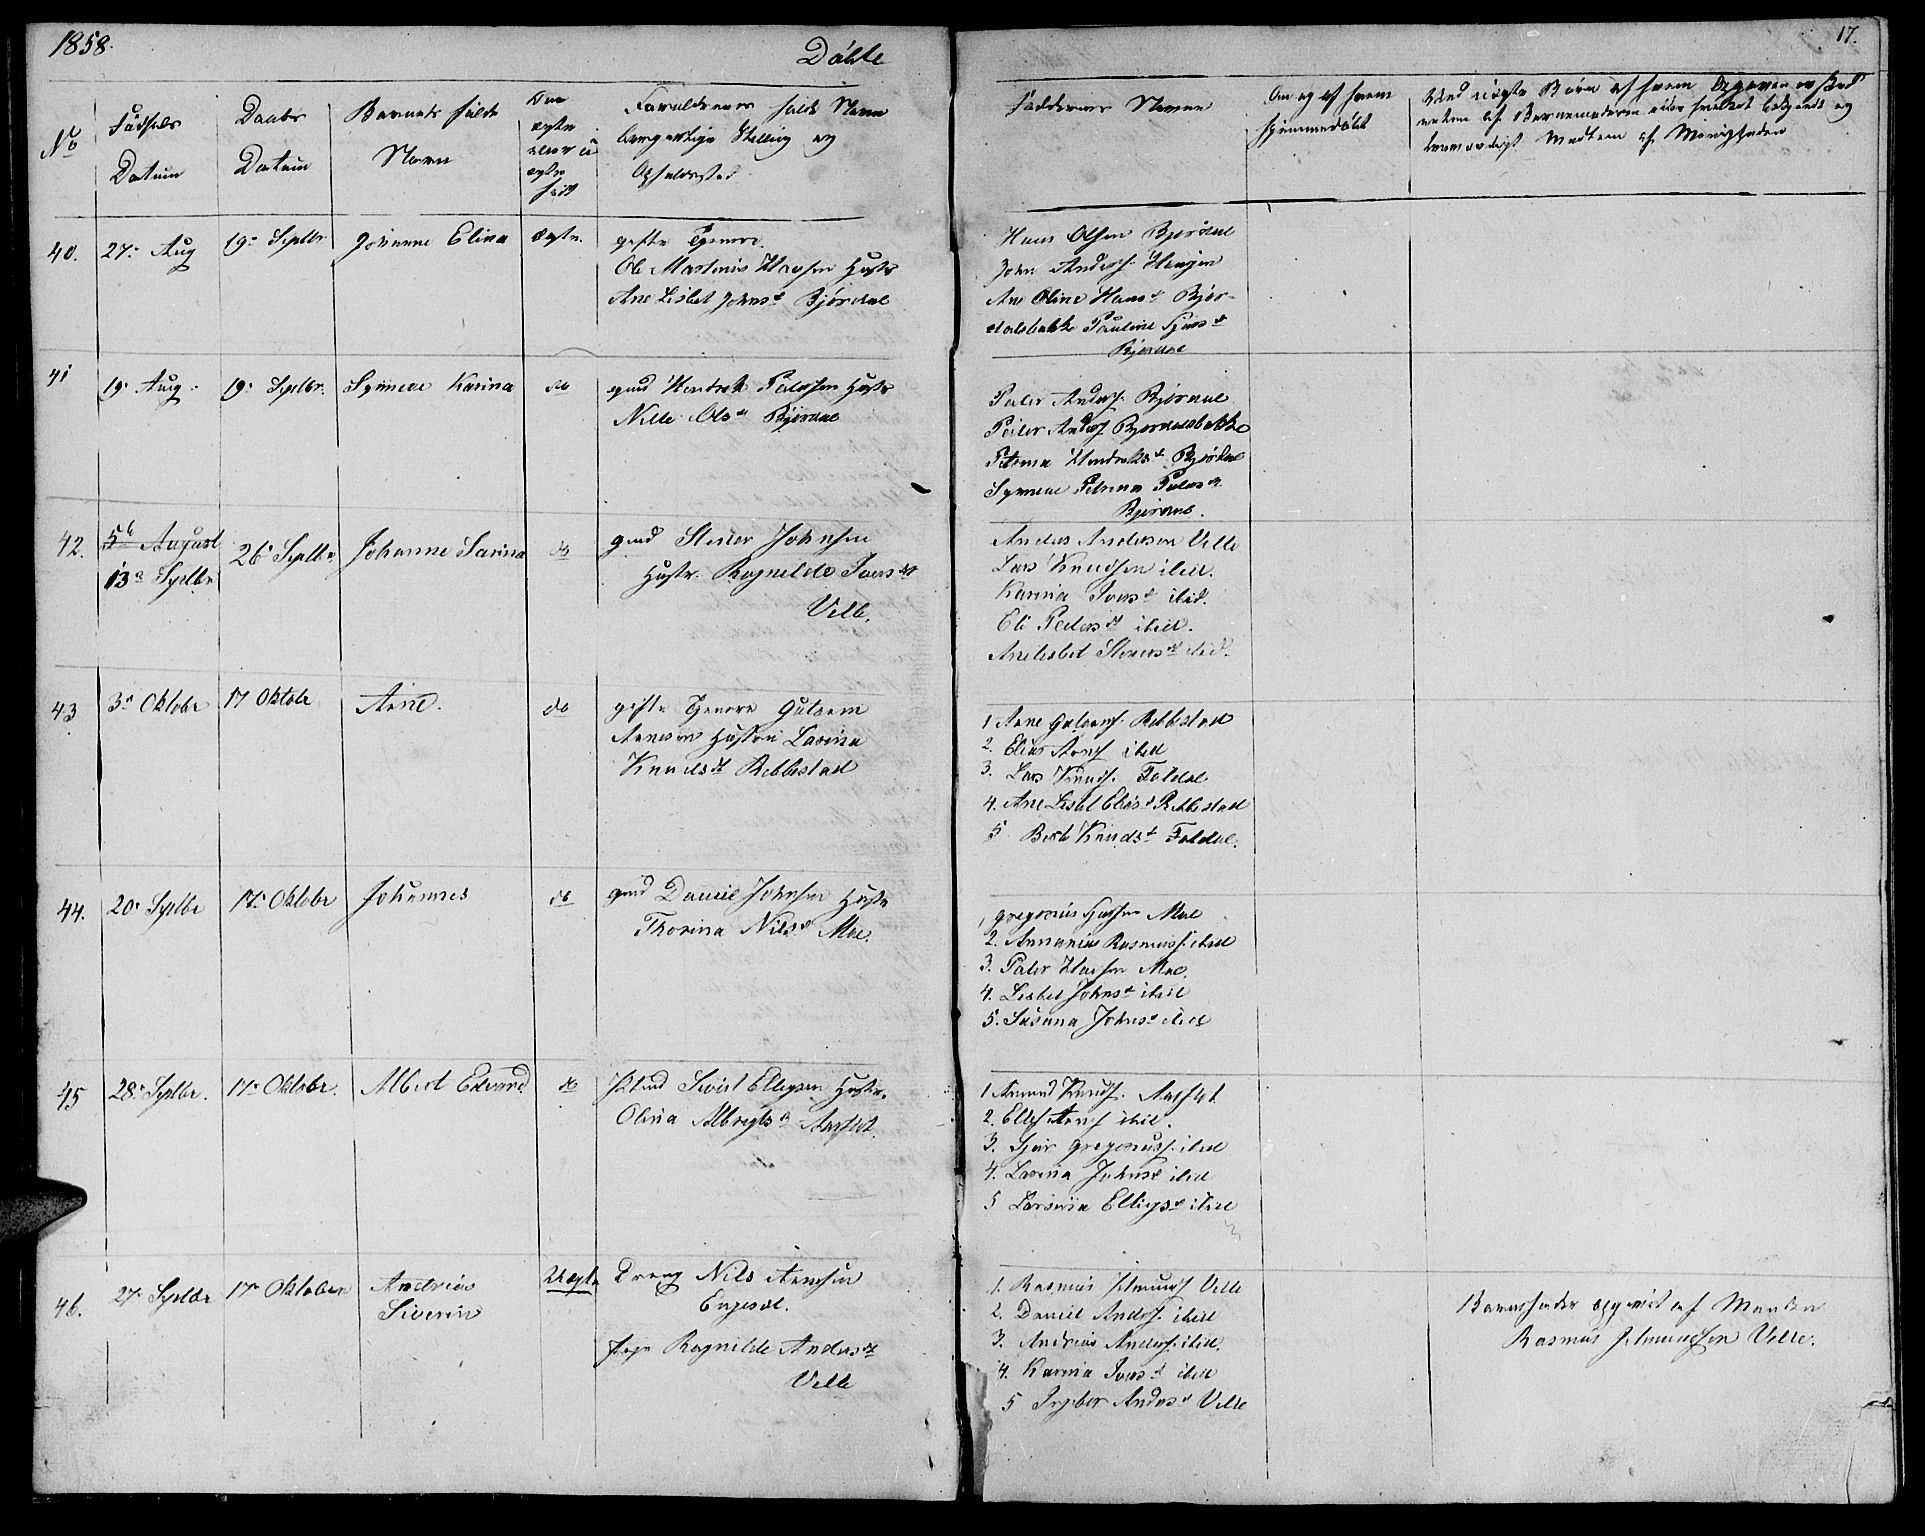 1858.
Döbte
17.
No
Födsels
Datum
Daabs
Datum
Barnets fulde
Navn
Om
ægte
eller u
ægte
født
Forældrenes fulde Navn
borgerlige Stilling og
Opholdssted
Faddernes Navne
Om og af hvem
hjemmedøbt
Ved uægte Børn af hvem Opgaven er skeet
enten af Barnemoderen eller hendes bekjendt og
troværdigt Medlem af Menigheden
40.
27. Aug
19. Septbr
Johanne Elina
ægte.
gifte
Ole Martinus Hansen Hustr
Ane Lisbet Johnsd Bjørdal
Hans Olsen Bjørdal
John Anders.
Ane Oline Hansd Bjør-
dalsbakke Pauline
Bjørdal
41
19. Aug.
19. Septbr.
Synneve Karina
do
gmd Hendrik Pedersen Hustr
Nille Olsd Bjørdal
Peder Anders. Bjørdal
Peder Anders Bjørdalsbakke
Petrina Hendriksd Bjørdal
Synneve Petrina Pedersd
Bjørdal.
42.
5t August
13de Septbr
26. Septbr.
Johanne Sarina
do
gmd Stener Johnsen
Hustr. Ragnilde Iversd
Velle.
Anders Andersen Velle
Lars Knudsen ibid.
Karina Iversd ibid.
Eli Pedersd ibid.
Anelisbet Stenersd ibid.
43
3. Oktober
17 Oktobr
Arne.
do
gifte Guttorm
Arnesen Hustru Lavina
Knudsd Rebbestad
1 Arne Guttorms. Rebbestad
2. Elias Arns ibid
3. Lars Knuds. Foldal
4. Ane Lisbet Eliasd Rebbestad
5 Berte Knudsd Foldal.
44.
20. Septbr
17. Oktober
Johannes
do
gmd Daniel Johnsen Hustr
Thorina Nilsd Moe.
1 Gregorius Moe
2. Annanias Rasmuss. ibid
3. Peder Moe.
4. Lisbet Johnsd ibid
5. Susana Johnsd ibid
45
28. Septbr.
17. Oktober.
Albert Edvard
do
Sivert Ellingsen Hustr.
Olina Albregtsd Aarset.
1 Amund Knuds. Aarset
2. Ellef Arns ibid.
3. Gregorius. ibid
4. Lavina Johnsd ibid
5 Larsina Ellingsd ibid
46.
27. Septbr
17. Oktober
Andreas
Siverin
Uægte
Dreng Nils Arnesen
Engeset.
Pige Ragnilde Andersd
Velle
1. Rasmus Velle
2. Daniel Anders. ibid
3. Andreas Anders. ibid.
4. Karina Iversd ibid
5 Ingebor Andersd Velle
Barnefader opgivet af Manden
Rasmus Velle.